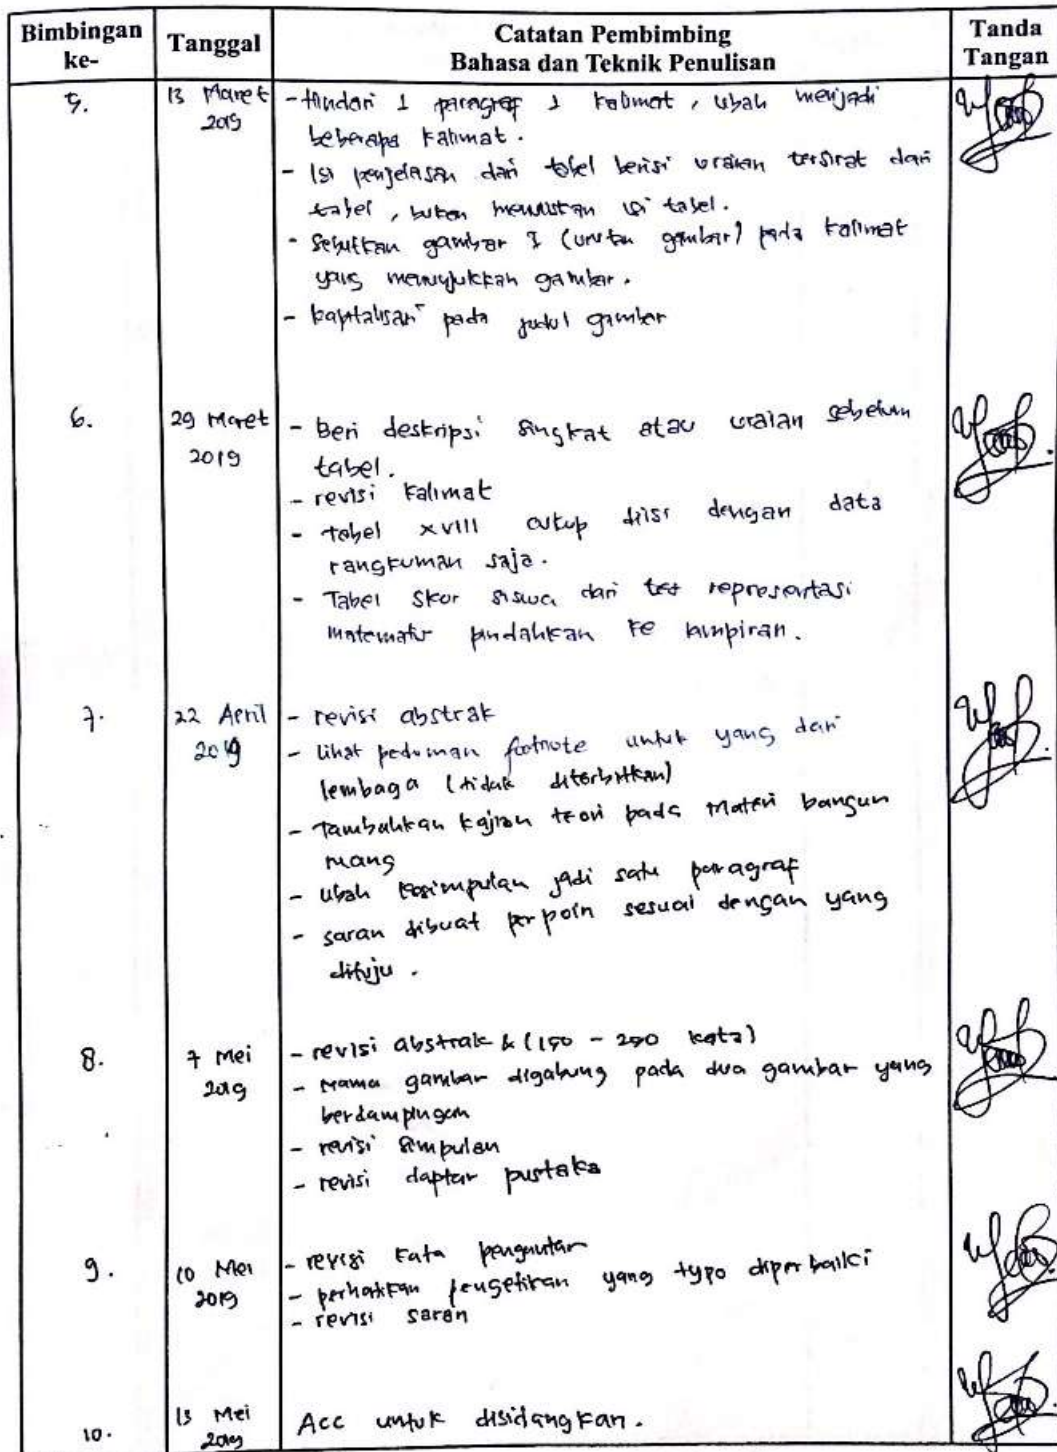 Bimbingan ke-
Tanggal
Catatan Pembimbing
Bahasa dan Teknik Penulisan
Tanda Tangan
5.
13 Maret
2019
- Hindari 1 paragraf 1 kalimat, ubah menjadi
beberapa kalimat.
- Isi penjelasan dari tabel berisi uraian tersirat dari
tabel, bukan menuliskan isi tabel.
- Sebutkan gambar I (urutan gambar) pada kalimat
yang menunjukkan gambar.
- kapitalisasi pada judul gambar
6.
29 Maret
2019
- Beri deskripsi singkat atau uraian sebelum
tabel.
- revisi kalimat
- tabel XVIII cukup diisi dengan data
rangkuman saja.
- Tabel skor siswa dari tes representasi
matematis pindahkan ke lampiran.
7.
22 April
2019
- revisi abstrak
- lihat pedoman footnote untuk yang dari
lembaga (tidak diterbitkan)
- Tambahkan kajian teori pada materi bangun
ruang
- ubah kesimpulan jadi satu paragraf
- saran dibuat per poin sesuai dengan yang
dituju.
8.
7 Mei
2019
- revisi abstrak & (150 - 250 kata)
- Nama gambar digabung pada dua gambar yang
berdampingan
- revisi simpulan
- revisi daptar pustaka
9.
10 Mei
2019
- revisi kata pengantar
- perhatikan pengetikan yang typo diperbaiki
- revisi saran
10.
13 Mei
2019
Acc untuk disidangkan.